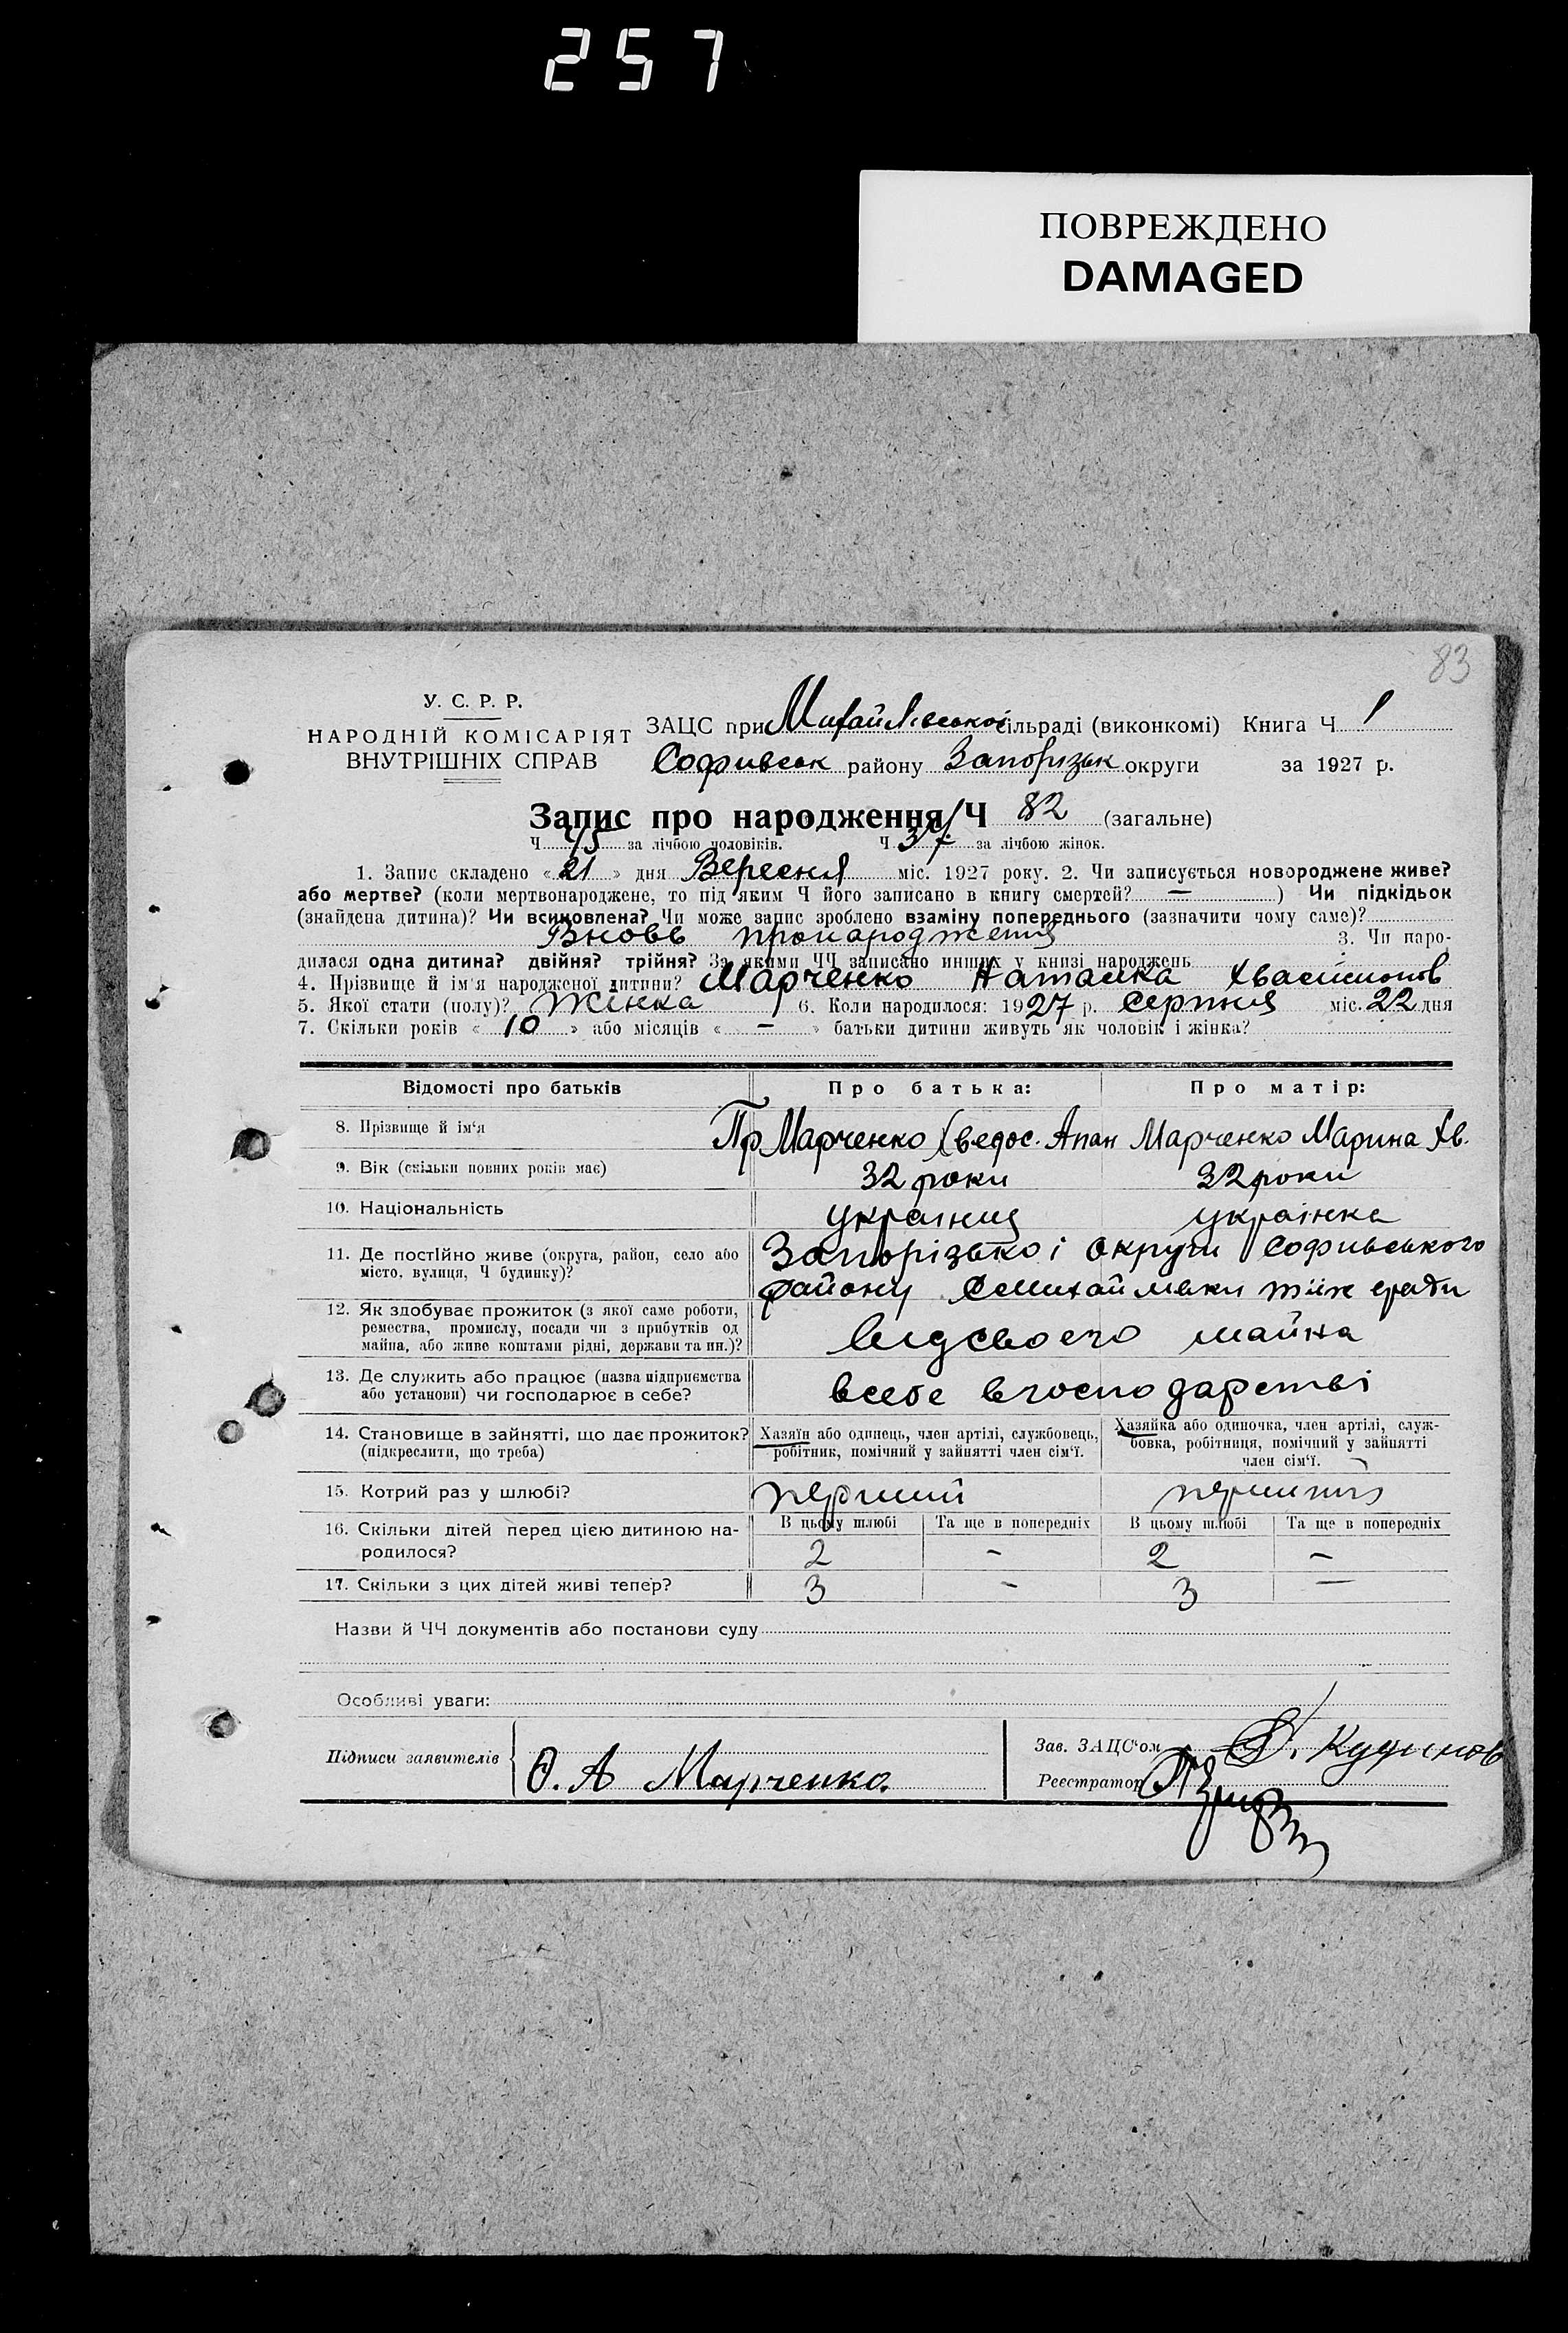 257
ПОВРЕЖДЕНО
DAMAGED
83
У. С. Р. Р.
НАРОДНІЙ КОМІСАРІЯТ
ВНУТРІШНІХ СПРАВ
ЗАЦС при Михайлівської сільраді (виконкомі) Книга Ч 1
Софивськ району Запорізьк округи за 1927 р.
Запис про народження Ч 82 (загальне)
Ч 45 за лічбою чоловіків. Ч 37 за лічбою жінок.
1. Запис складено «21» дня Вересня міс. 1927 року. 2. Чи записується новороджене живе?
або мертве? (коли мертвонароджене, то під яким Ч його записано в книгу смертей? — ) Чи підкідьок
(знайдена дитина)? Чи всиновлена? Чи може запис зроблено взаміну попереднього (зазначити чому саме)?
Вновь пронародження 3. Чи наро-
дилася одна дитина? двійня? трійня? За якими ЧЧ записано инших у книзі народжень
4. Прізвище й ім'я народженої дитини? Марченко Наталка
5. Якої стати (полу)? Жінка 6. Коли народилося: 1927 р. Серпня міс. 22 дня
7. Скільки років «10» або місяців «—» батьки дитини живуть як чоловік і жінка?
Відомості про батьків Про батька: Про матір:
8. Прізвище й ім'я Пр Марченко Хведос. Апан Марченко Марина Хв.
9. Вік (скільки повних років має) 32 роки 32 роки
10. Національність українця українка
11. Де постійно живе (округа, район, село або
місто, вулиця, Ч будинку)?
Запорізької округи Софивського
району С Михайлівки
12. Як здобуває прожиток (з якої само роботи,
ремества, промислу, посади чи з прибутків од
майна, або живе коштами рідні, держави та ин.)?
Видсвоего майна
13. Де служить або працює (назва підприємства
або установи) чи господарює в себе?
всебе вгосподарстві
14. Становище в зайнятті, що дає прожиток?
(підкреслити, що треба)
Хазяїн або одинець, член артілі, службовець,
робітник, помічний у зайнятті член сім'ї.
Хазяйка або одиночка, член артілі, служ-
бовка, робітниця, помічний у зайнятті
член сім'ї.
15. Котрий раз у шлюбі? перший
16. Скільки дітей перед цією дитиною на-
родилося?
В цьому шлюбі Та ще в попередніх В цьому шлюбі Та ще в попередніх
2 - 2 -
17. Скільки з цих дітей живі тепер? 3 - 3 —
Назви й ЧЧ документів або постанови суду
Особливі уваги:
Підписи заявителів Ѳ. А Марченко.
Зав. ЗАЦС'ом Кудинов
Реєстратор